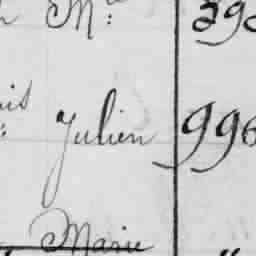 M.
is Julien 996
Marie "